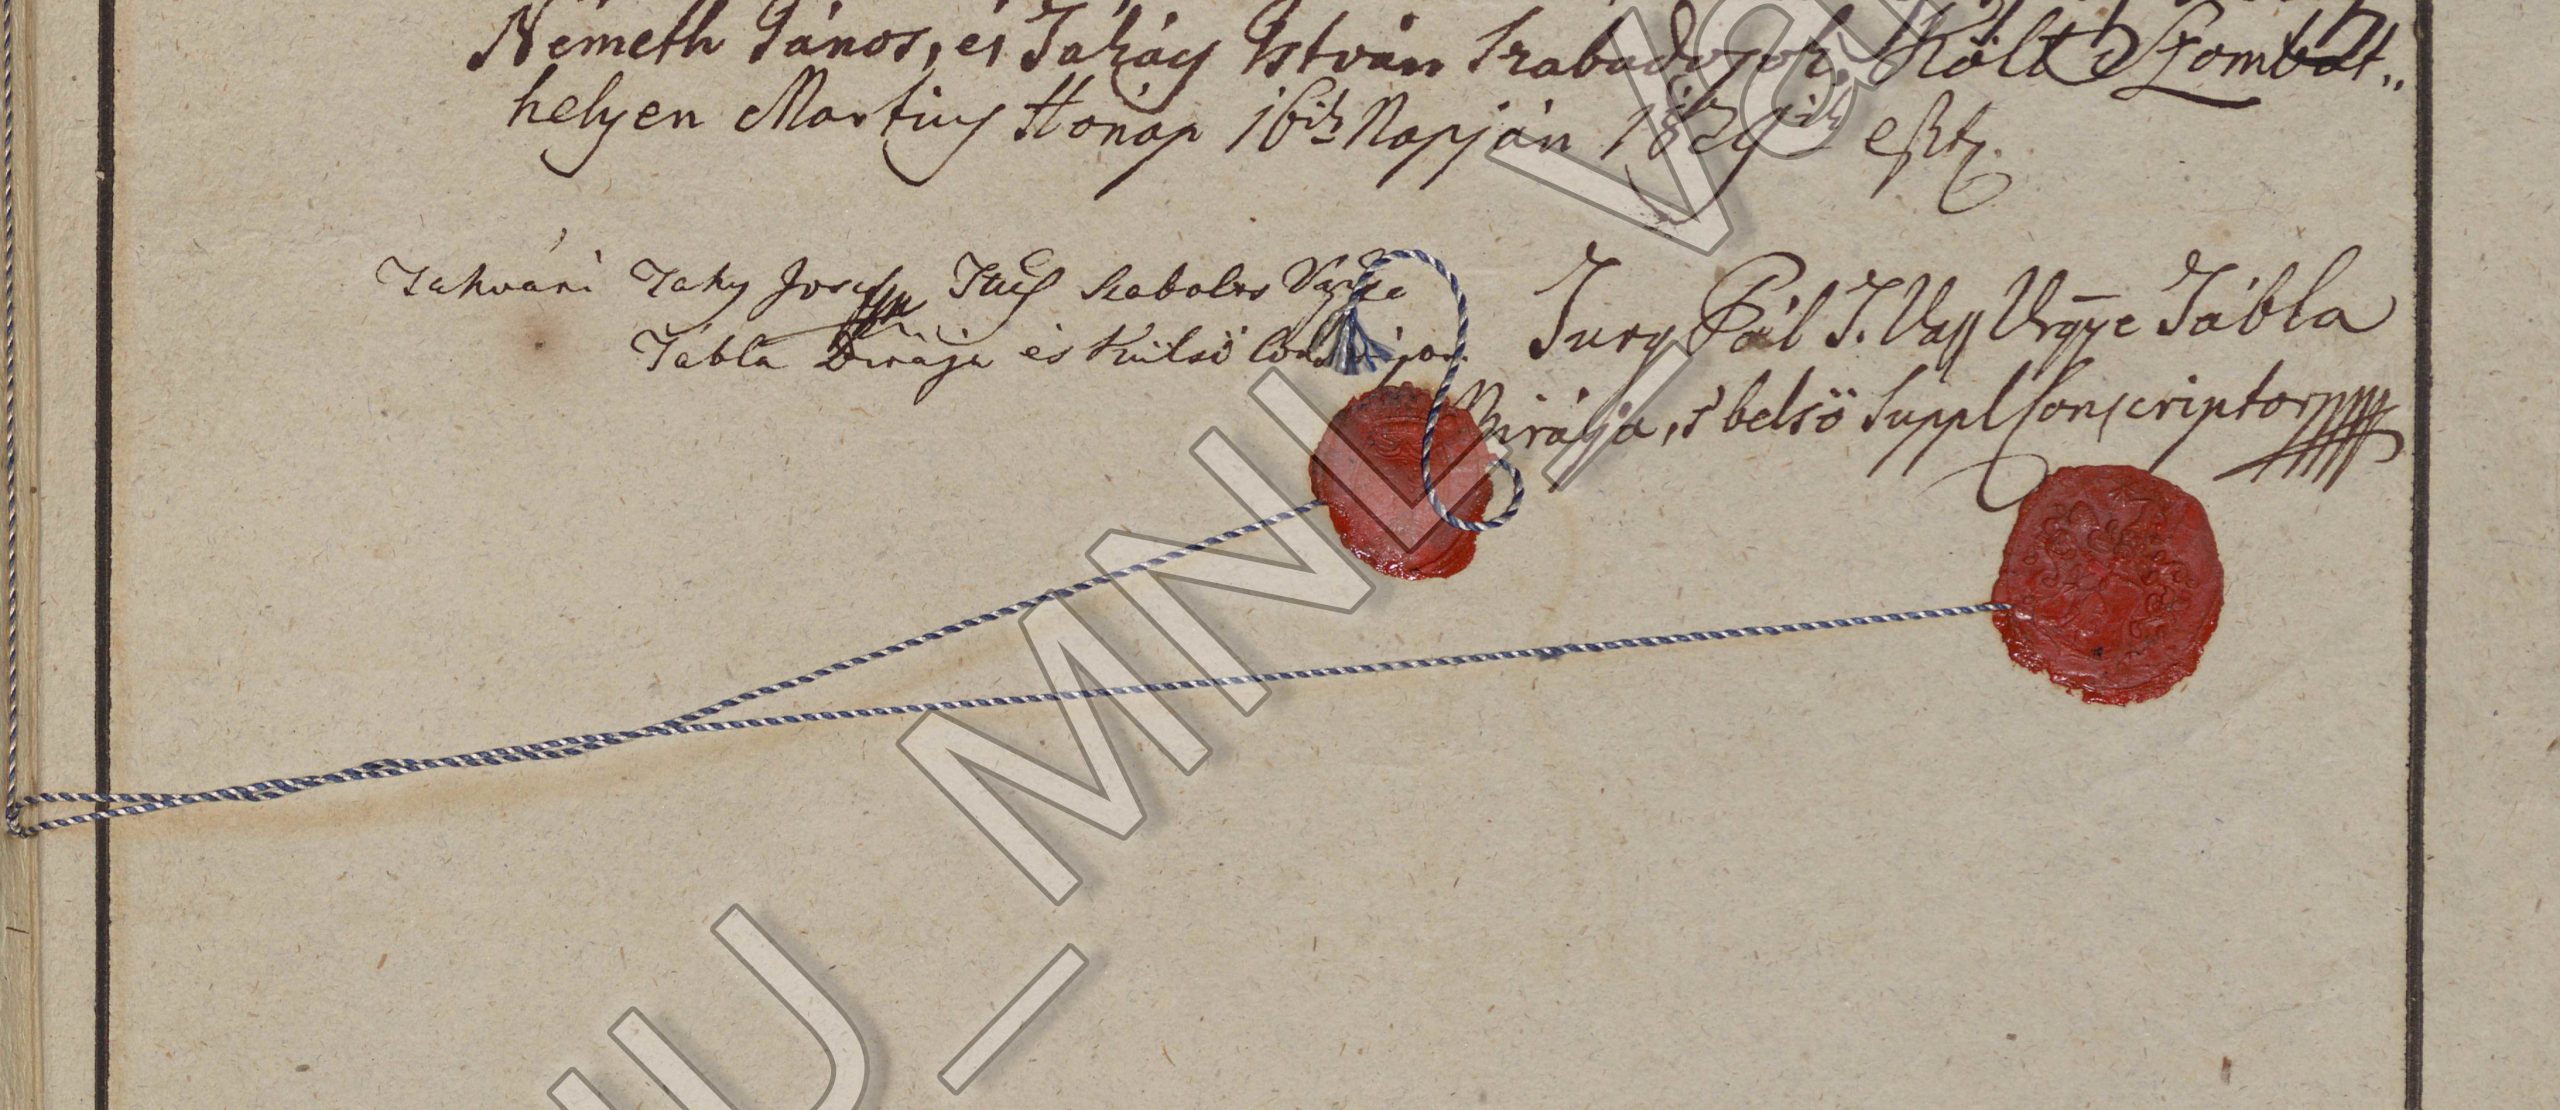 Németh János, és Takács István Szabadosok. Költ Szombat„
helyen Martius Hónap 16ik Napján 1829ik eszt.
Tahvári Tahy Josef Ttes Szabolcs Vgye
Tábla Birája és Külső
Jury Pál T. Vass Vrgye Tábla
Birája, 's belső Suppl Conscriptor
HU_MNL_Va